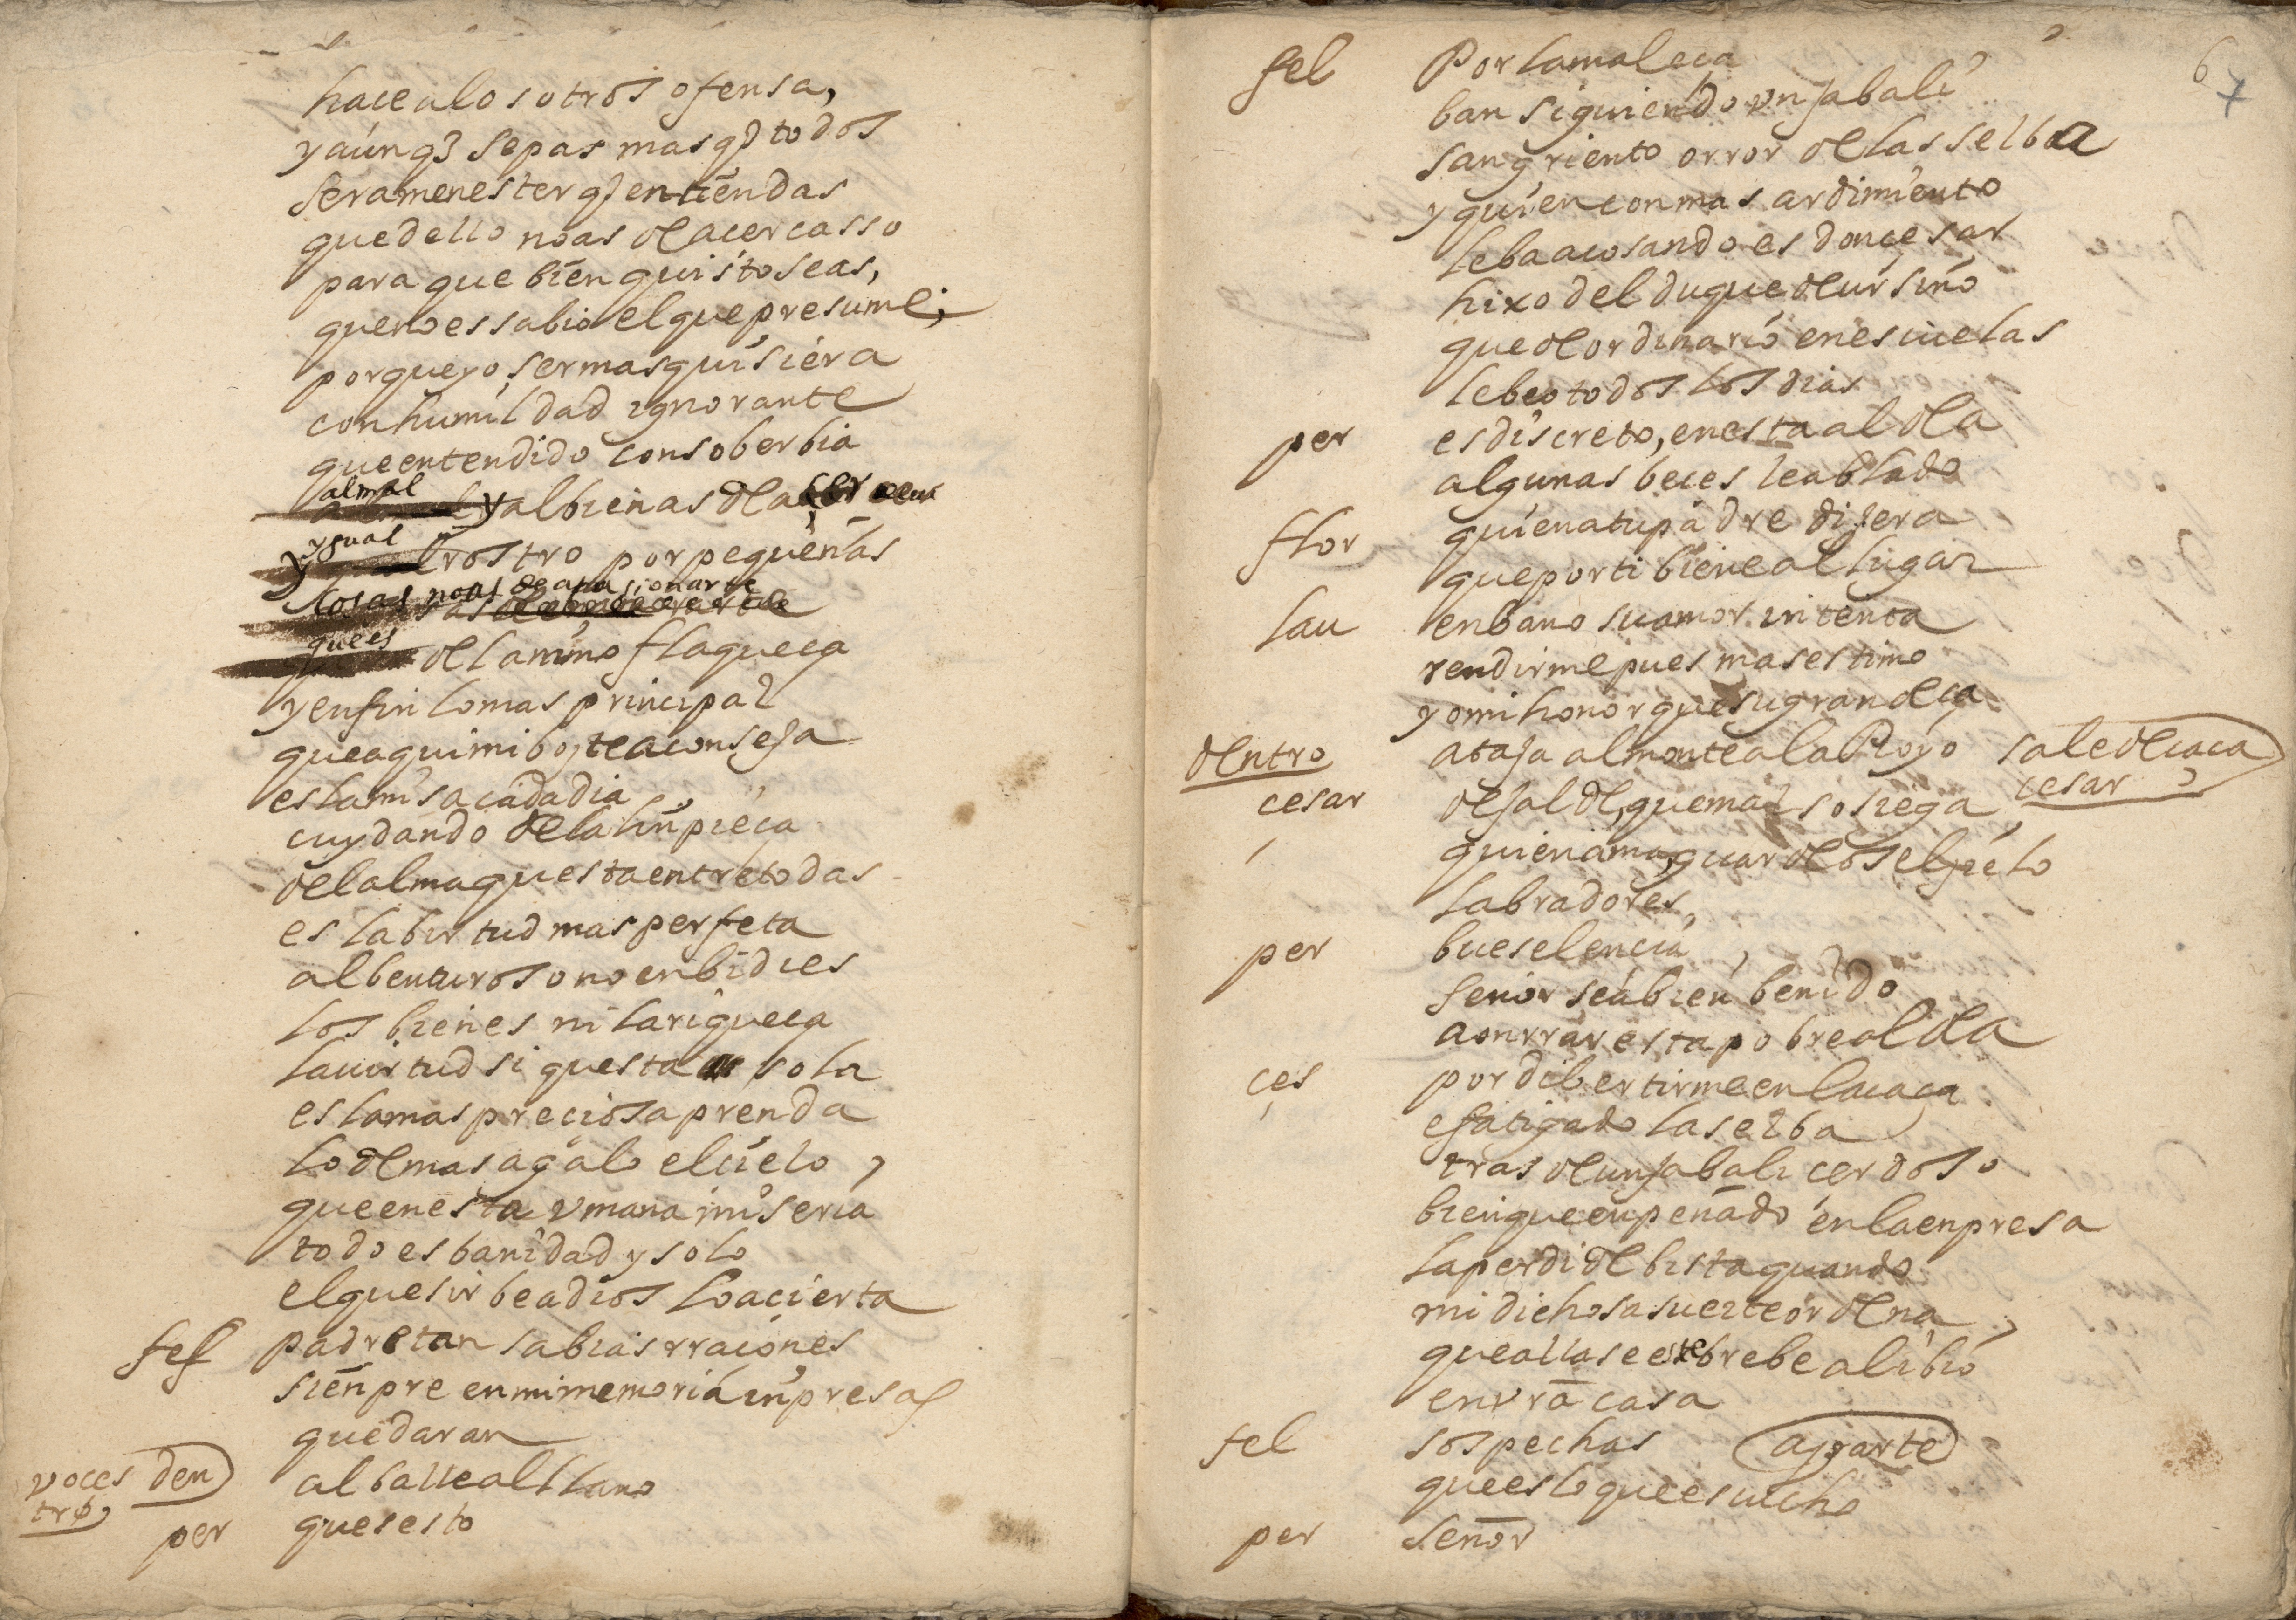 hace a los otros ofensa,
y aunq̃ sepas mas q̃ todos
sera menester q̃ entiendas
que dello no as de acer casso
para que bien quisto seas,
que no es sabio el que presume;
porque yo ser mas quisiera
con humildad ygnorante
que entendido con soberbia
al mal
y al bien as de acer
ygual
y rostro por pequeñas
cosas no as de apasionarte
que es
del animo flaqueça
y en fin lo mas principal
que aqui mi boz te aconseja
es la misa cada dia
cuydando de la linpieça
del alma questa entre todas
es la birtud mas perfeta
al benturoso no enbidies
los bienes ni la riqueça
la uirtud si questa sola
es la mas preciosa prenda
lo demas agalo el cielo,
que en esta vmana miseria
todo es banidad y solo
el que sirbe a dios lo acierta
fel padre tan sabias rraçones
sienpre en mi memoria inpresas
quedaran
voces den al balle al llano
tro,
per ques esto
6
7
fel Por la maleça
ban siguiendo vn jabali
sangriento orror de las selba
y quien con mas ardimiento
le ba acosando es don çesar
hixo del duque de ursino
que de ordinario en escuelas
le beo todos los dias
per es discreto, en esta aldea
algunas beces le ablado
flor quien a tu padre dijera
que por ti biene al lugar
lau en bano su amor intenta
rendirme pues mas estimo
yo mi honor que su grandeça
dentro ataja al monte al aRoyo sale de caça
cesar dejalde, que mal sosiega cesar
quien ama, guardeos el cielo
labradores,
per bueselencia,
señor sea bien benido
a onrrar esta pobre aldea
çes por dibertirme en la caça
e fatigado la selba
tras de un jabali cerdoso
bien que enpeñado en la enpresa
la perdi de bista quando
mi dichosa suerte ordena,
que allase este brebe alibio
en vrã casa
fel sospechas aparte
que es lo que escucho
per señor